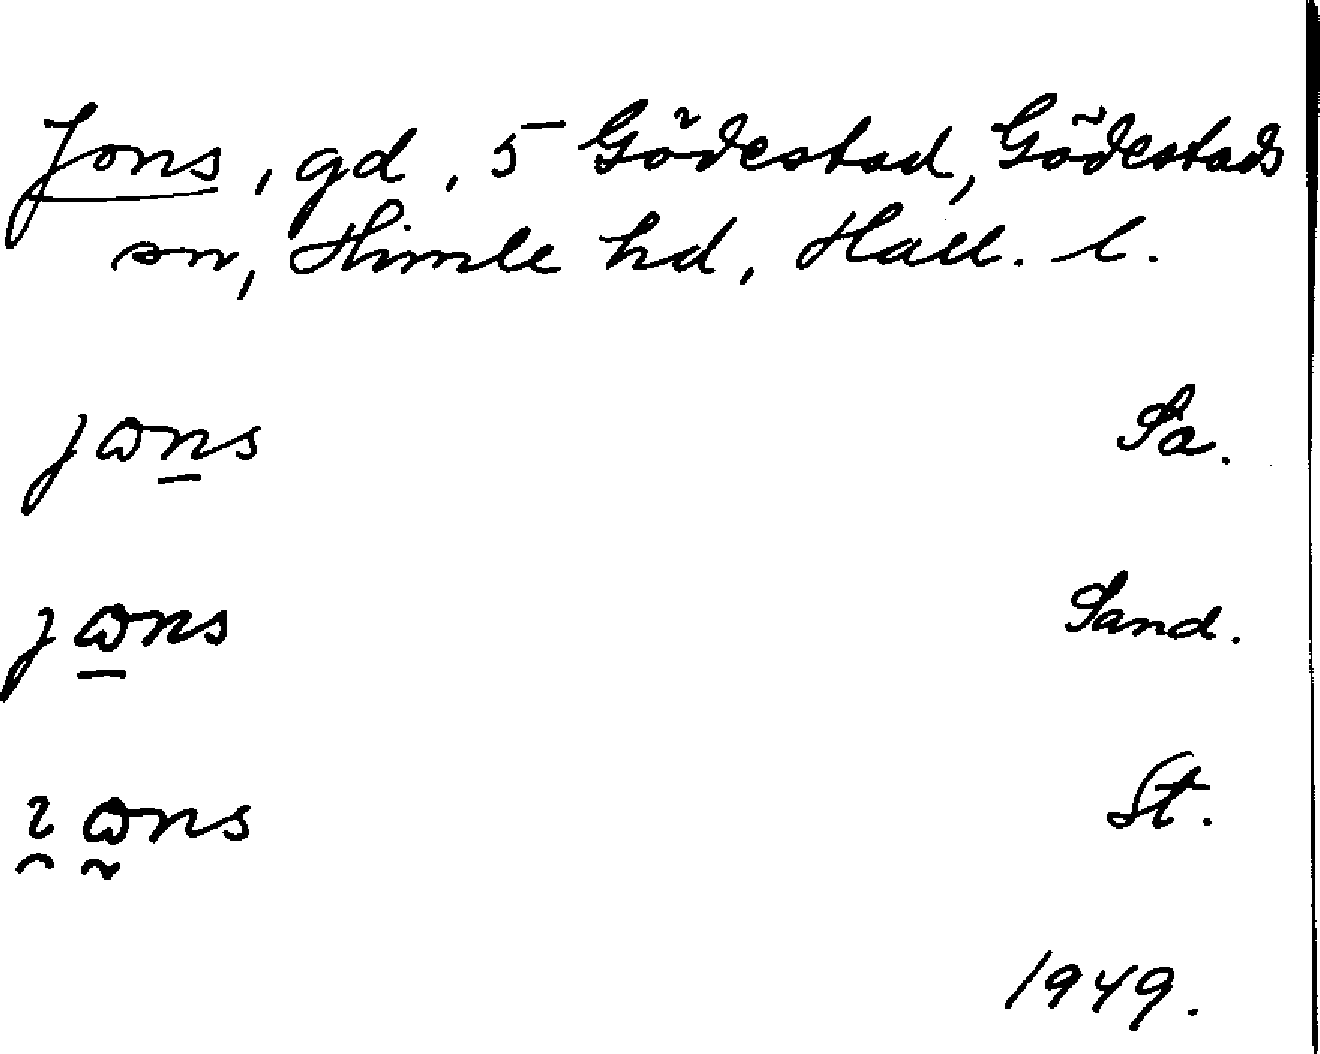 Jons, gd, 5 Gödestad, Gödestads
sn, Himle hd, Hall. l.
jɷn̲s Sa.
jɷ̲ns Sand.
ı̯ɷ̰ns St.
1949.